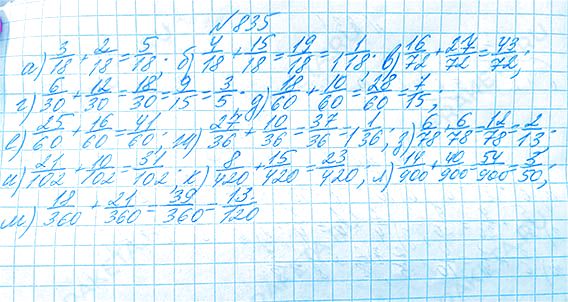 №835
а) 3/18 + 2/18 = 5/18. б) 4/18 + 15/18 = 19/18 = 1 1/18. в) 16/72 + 27/72 = 43/72;
г) 6/30 + 12/30 = 18/30 = 9/15 = 3/5. д) 18/60 + 10/60 = 28/60 = 7/15;
е) 25/60 + 16/60 = 41/60; ж) 27/36 + 10/36 = 37/36 = 1 1/36; з) 6/78 + 6/78 = 12/78 = 2/13.
и) 21/102 + 10/102 = 31/102. к) 8/420 + 15/420 = 23/420; л) 14/900 + 40/900 = 54/900 = 3/50;
м) 18/360 + 21/360 = 39/360 = 13/120